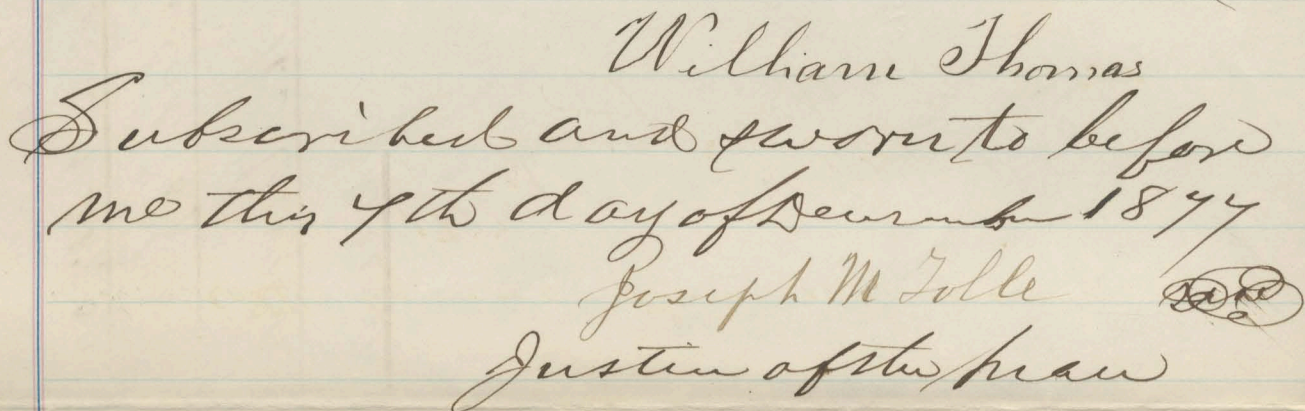 William Thomas
Subscribed and sworn to before
me this 7th day of December 1877
Joseph M Tolle Seal
Justice of the peace